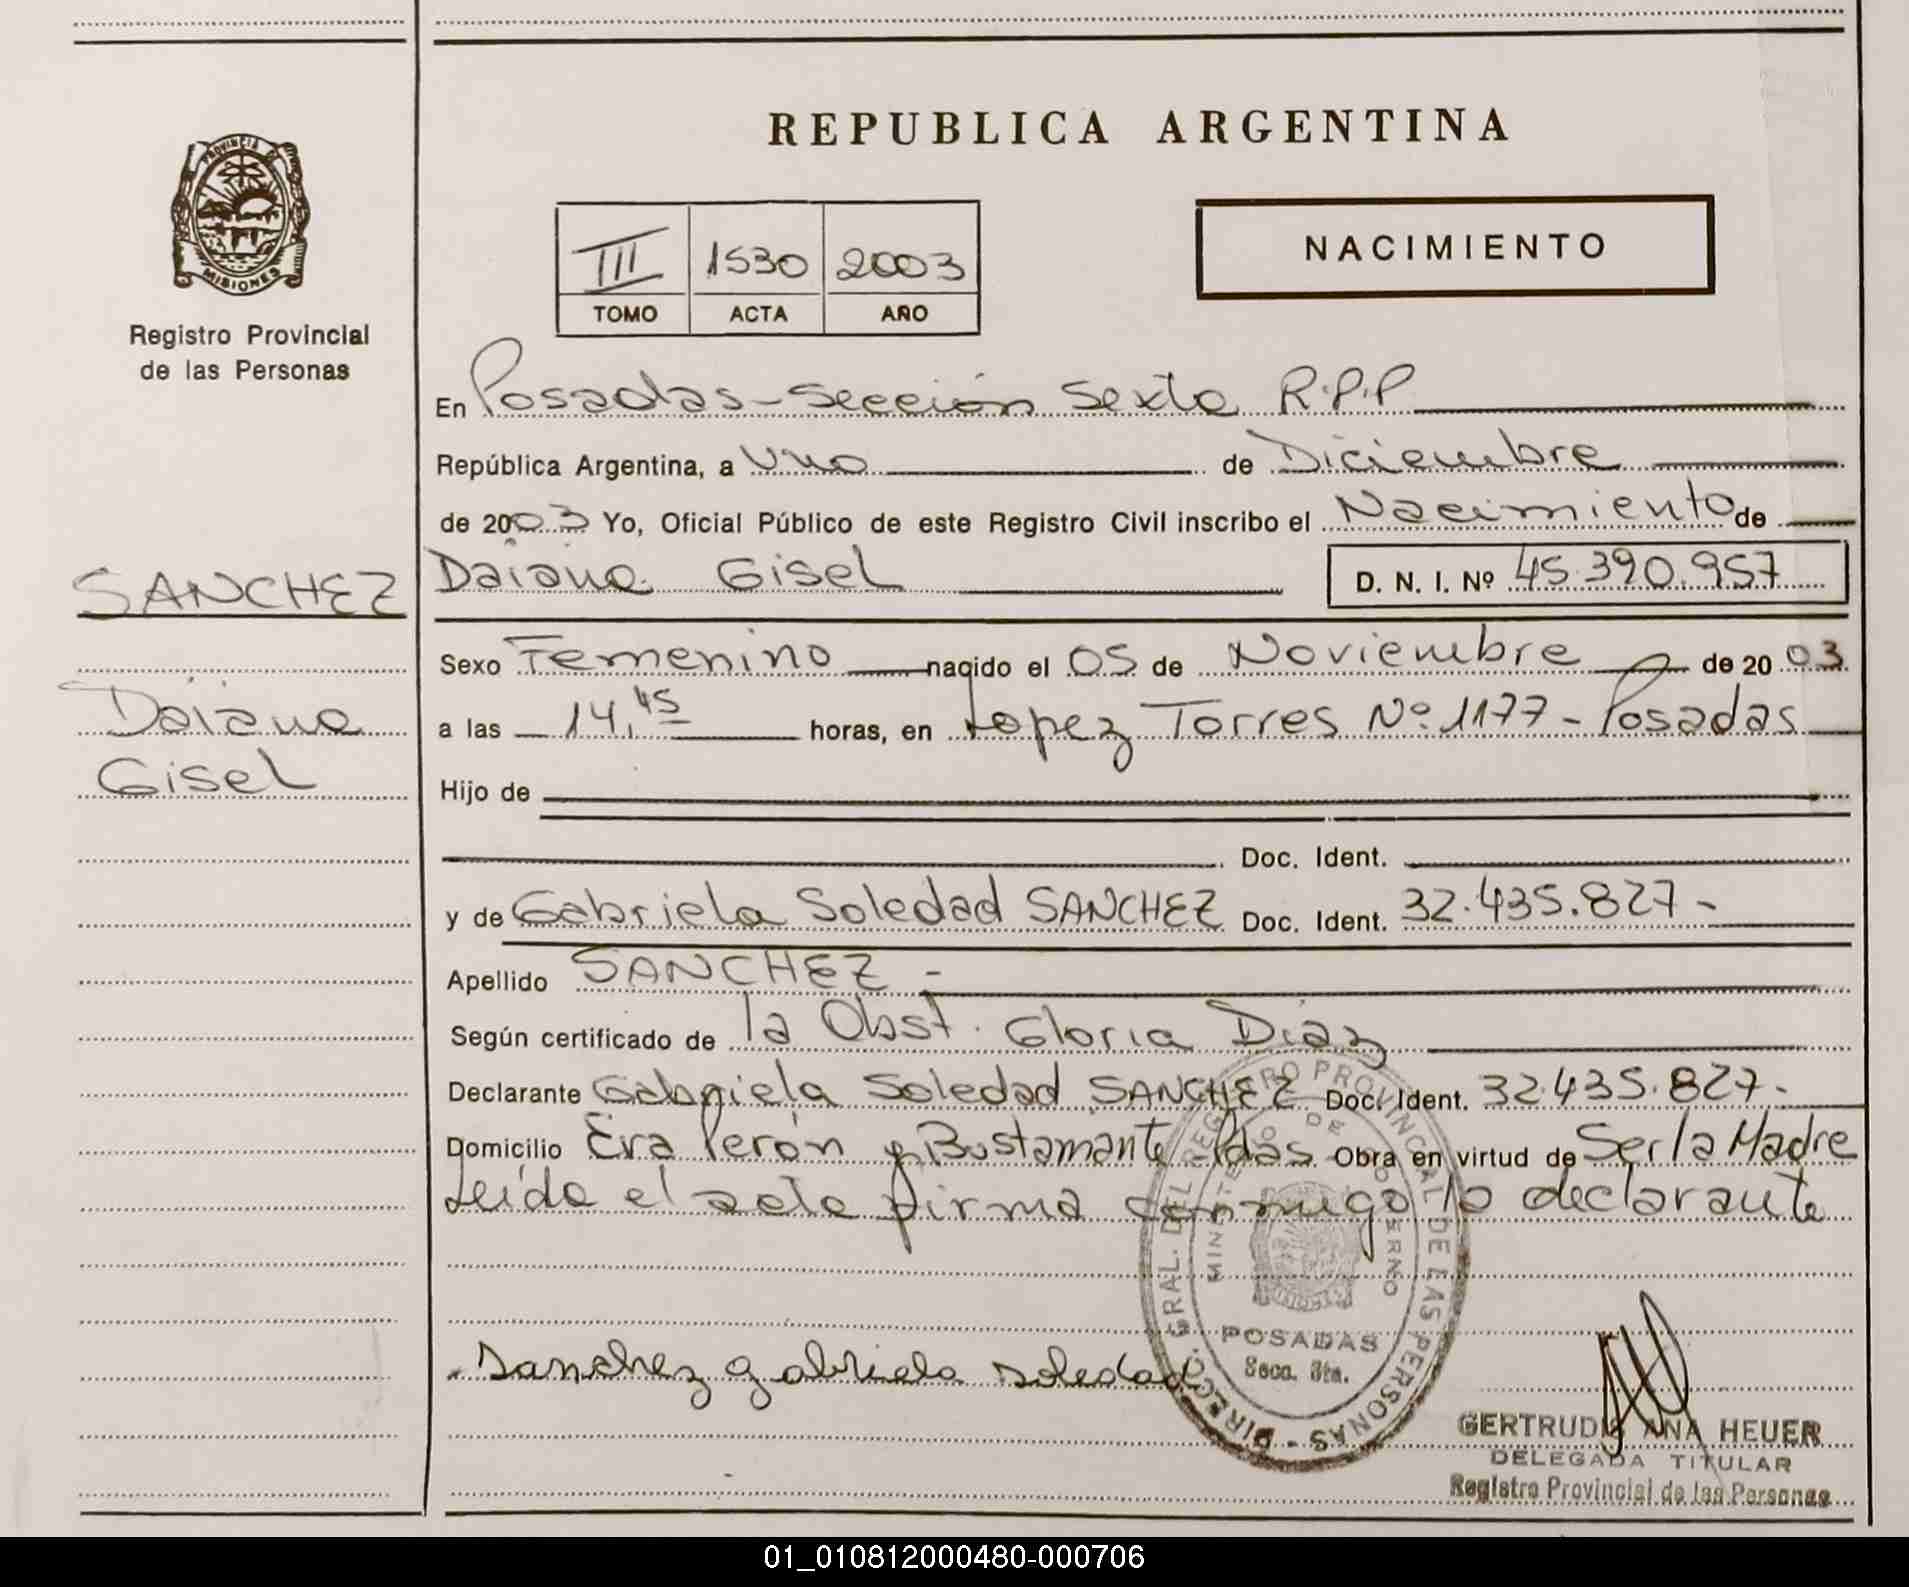 REPUBLICA ARGENTINA
PROVINCIA DE
MISIONES
Registro Provincial
de las Personas
III 1530 2003
TOMO ACTA AÑO
NACIMIENTO
En Posadas - Sección Sexta R.P.P
República Argentina, a Uno de Diciembre
de 2003 Yo, Oficial Público de este Registro Civil inscribo el Nacimiento de
SANCHEZ
Daiana Gisel
D. N. I. Nº 45.390.957
Sexo Femenino nacido el 05 de Noviembre de 2003
Daiana
Gisel
a las 14,45 horas, en Lopez Torres Nº 1177 - Posadas
Hijo de
Doc. Ident.
y de Gabriela Soledad SANCHEZ Doc. Ident. 32.435.827-
Apellido SANCHEZ -
Según certificado de la Obst. Gloria Diaz
Declarante Gabriela Soledad SANCHEZ Doc. Ident. 32.435.827-
Domicilio Eva Perón y Bustamante Pdas. Obra en virtud de Ser la Madre
Leída el acta firma conmigo la declarante
DIRECC. GRAL. DEL REGISTRO PROVINCIAL DE LAS PERSONAS -
MINISTERIO DE GOBIERNO
POSADAS
Secc. 6ta.
Sanchez gabriela soledad
GERTRUDIS ANA HEUER
DELEGADA TITULAR
Registro Provincial de las Personas
01_010812000480-000706